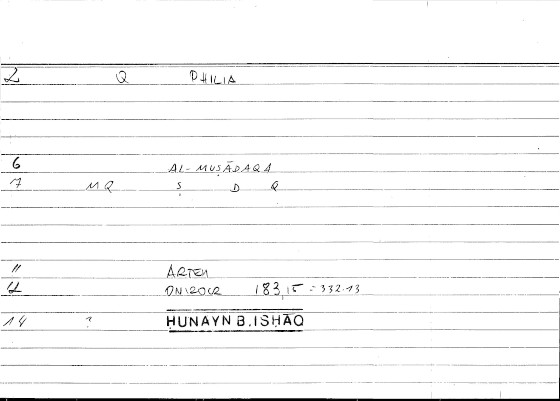 2 Q PHILIA
6 AL-MUṢĀDAQA
7 MQ Ṣ D Q
" ARTEM
183,15 = 332.13
14 ? HUNAYN B. ISḤĀQ